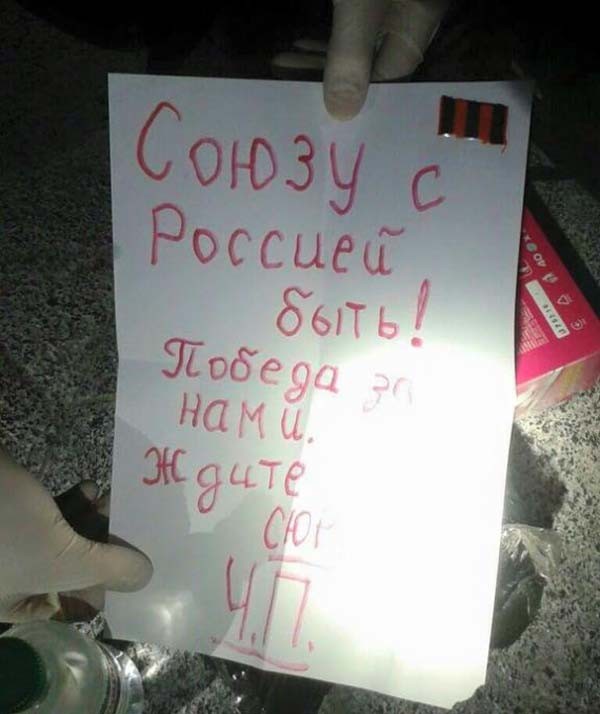 Союзу с
Россией
быть!
Победа за
нами.
Ждите
Ч.П.